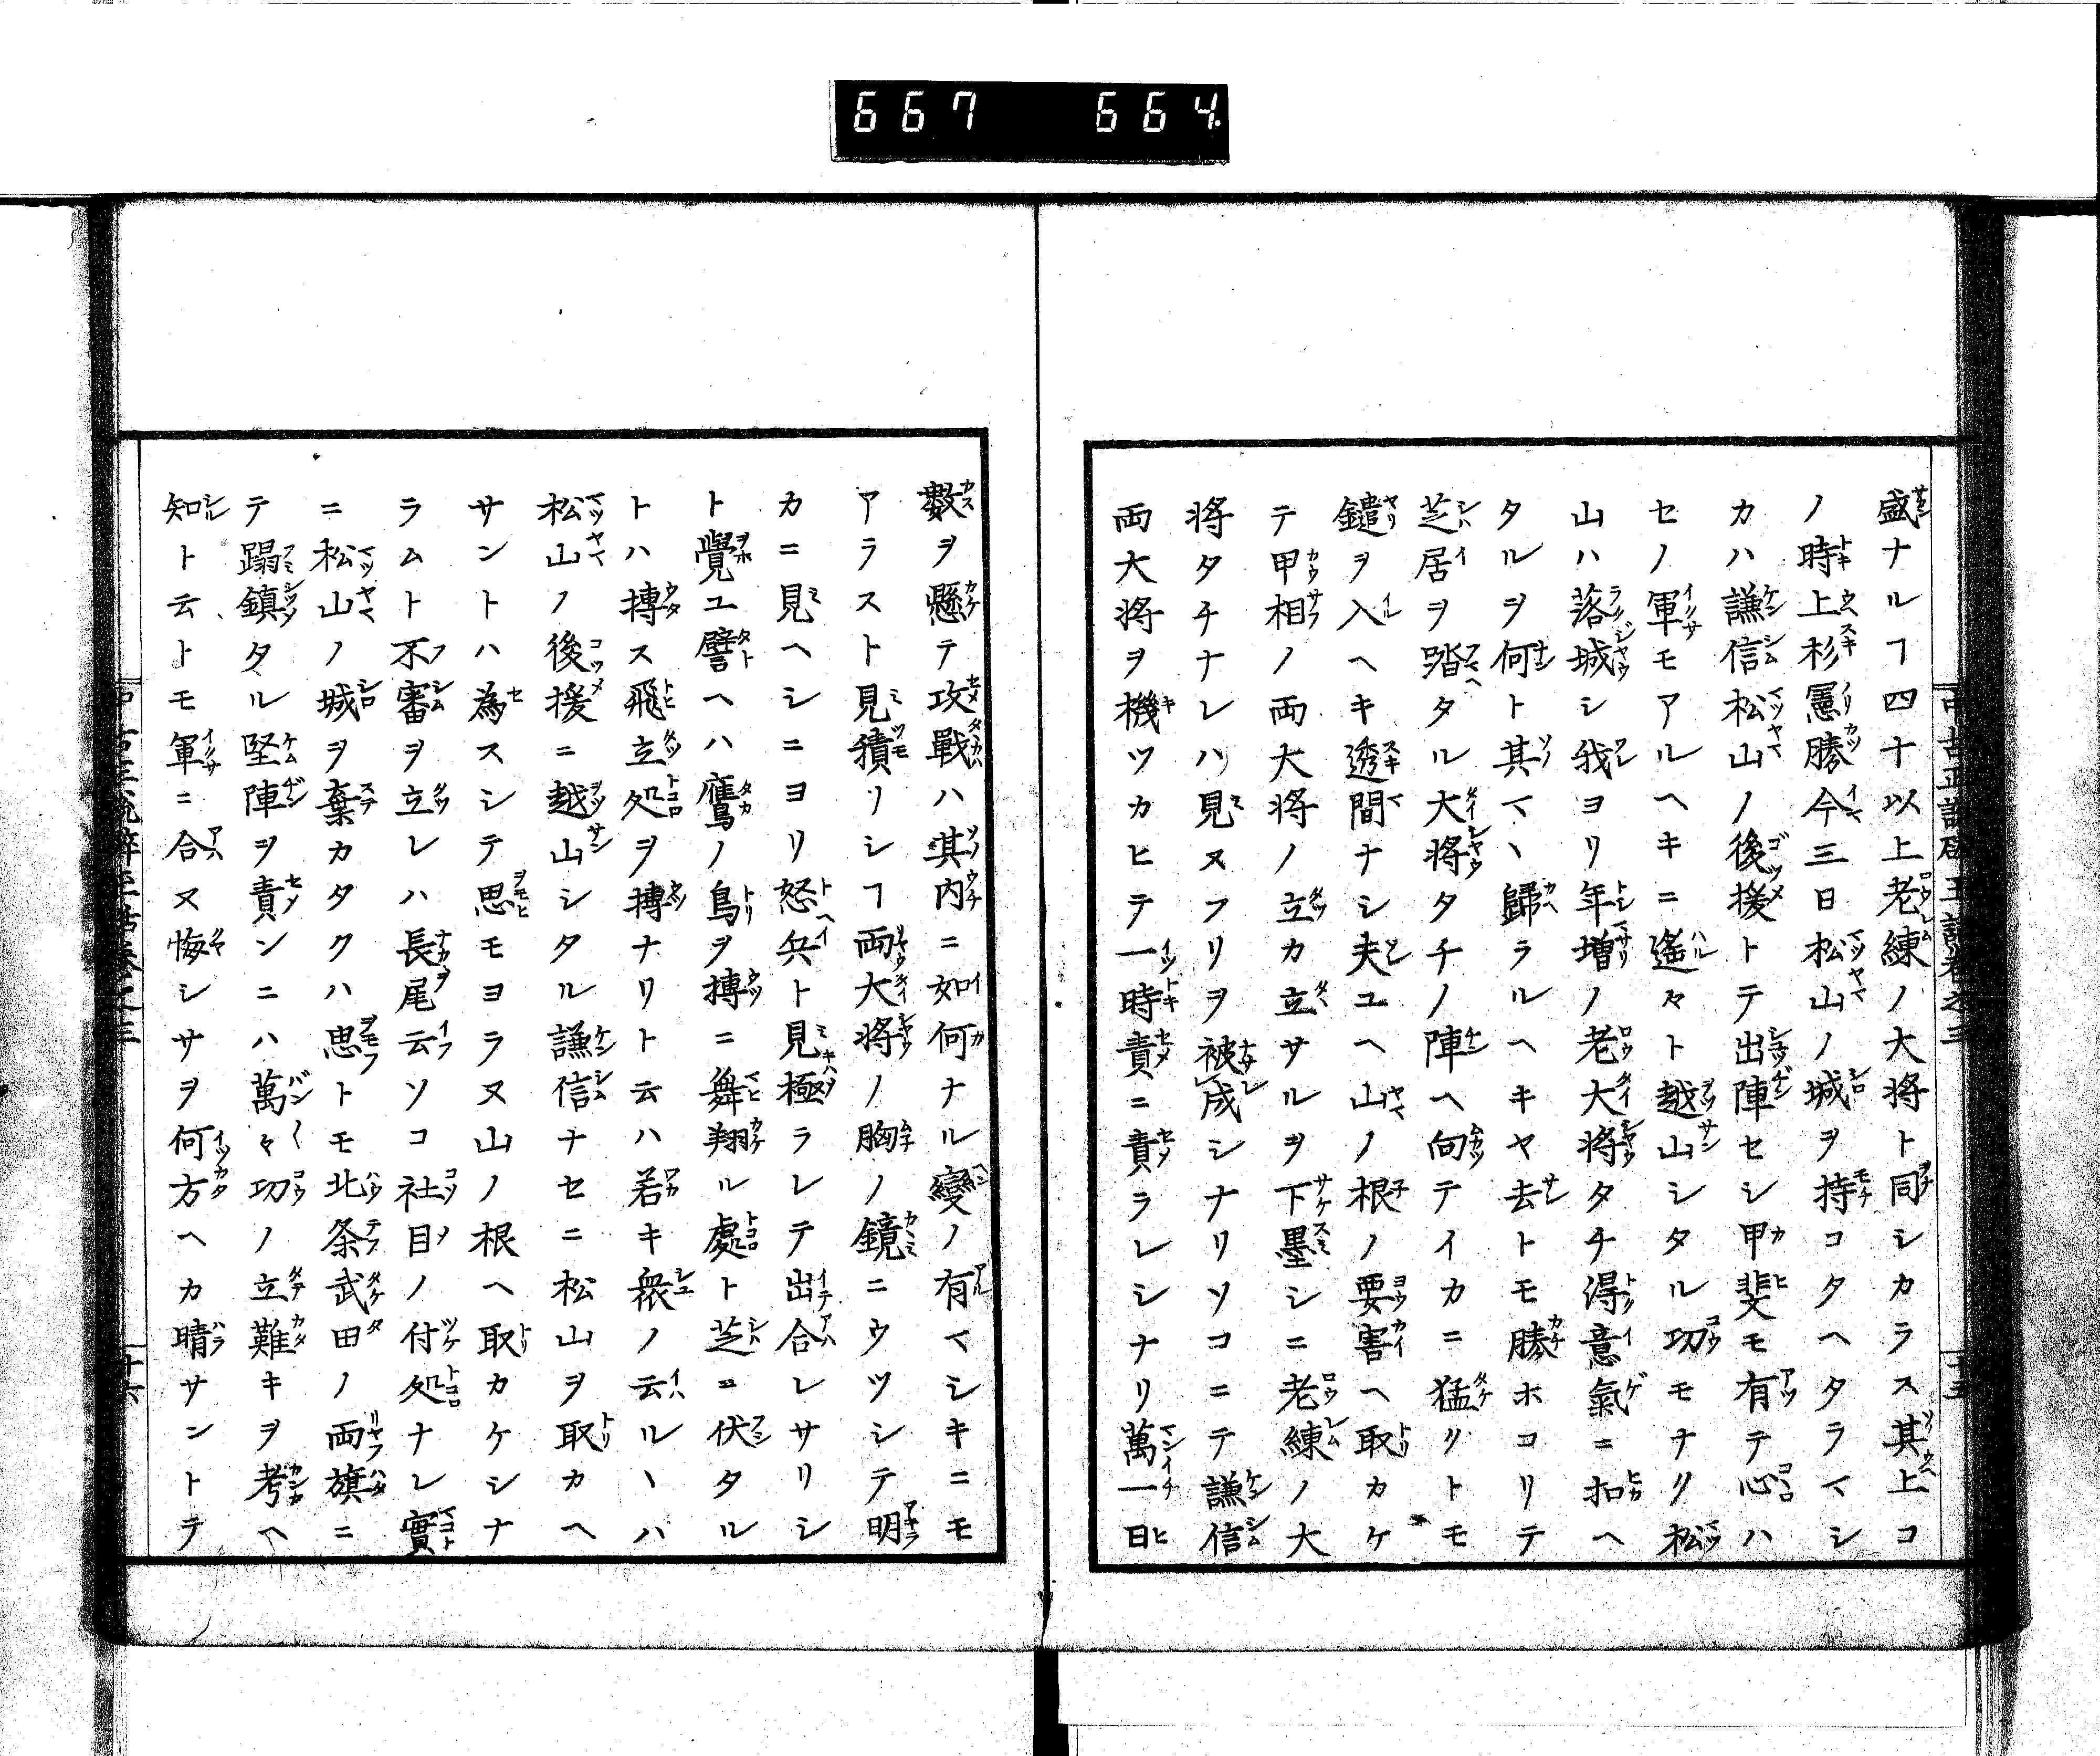 667 664
盛ナルヿ四十以上老練ノ大将ト同シカラス其上コ
ノ時上杉憲勝今三日松山ノ城ヲ持コタヘタラマシ
カハ謙信松山ノ後援トテ出陣セシ甲斐モ有テ心ハ
セノ軍モアルヘキニ遙々ト越山シタル功モナク松
山ハ落城シ我ヨリ年増ノ老大将タチ得意氣ニ扣ヘ
タルヲ何ト其マヽ歸ラルヘキヤ去トモ勝ホコリテ
芝居ヲ踏タル大将タチノ陣ヘ向テイカニ猛リトモ
鑓ヲ入ヘキ透間ナシ夫ユヘ山ノ根ノ要害ヘ取カケ
テ甲相ノ両大将ノ立カ立サルヲ下墨シニ老練ノ大
将タチナレハ見ヌフリヲ被成シナリソコニテ謙信
両大将ヲ機ツカヒテ一時責ニ責ラレシナリ萬一日
數ヲ懸テ攻戰ハ其内ニ如何ナル變ノ有マシキニモ
アラスト見積リシヿ両大将ノ胸ノ鏡ニウツシテ明
カニ見ヘシニヨリ怒兵ト見極ラレテ出合レサリシ
ト覺ユ譬ヘハ鷹ノ鳥ヲ搏ニ舞翔ル處ト芝ニ伏タル
トハ搏ス飛立処ヲ搏ナリト云ハ若キ衆ノ云ルヽハ
松山ノ後援ニ越山シタル謙信ナセニ松山ヲ取カヘ
サントハ為スシテ思モヨラヌ山ノ根ヘ取カケシナ
ラムト不審ヲ立レハ長尾云ソコ社目ノ付処ナレ實
ニ松山ノ城ヲ棄カタクハ思トモ北条武田ノ両旗ニ
テ蹋鎮タル堅陣ヲ責ンニハ萬々功ノ立難キヲ考ヘ
知ト云トモ軍ニ合ヌ悔シサヲ何方ヘカ晴サントテ